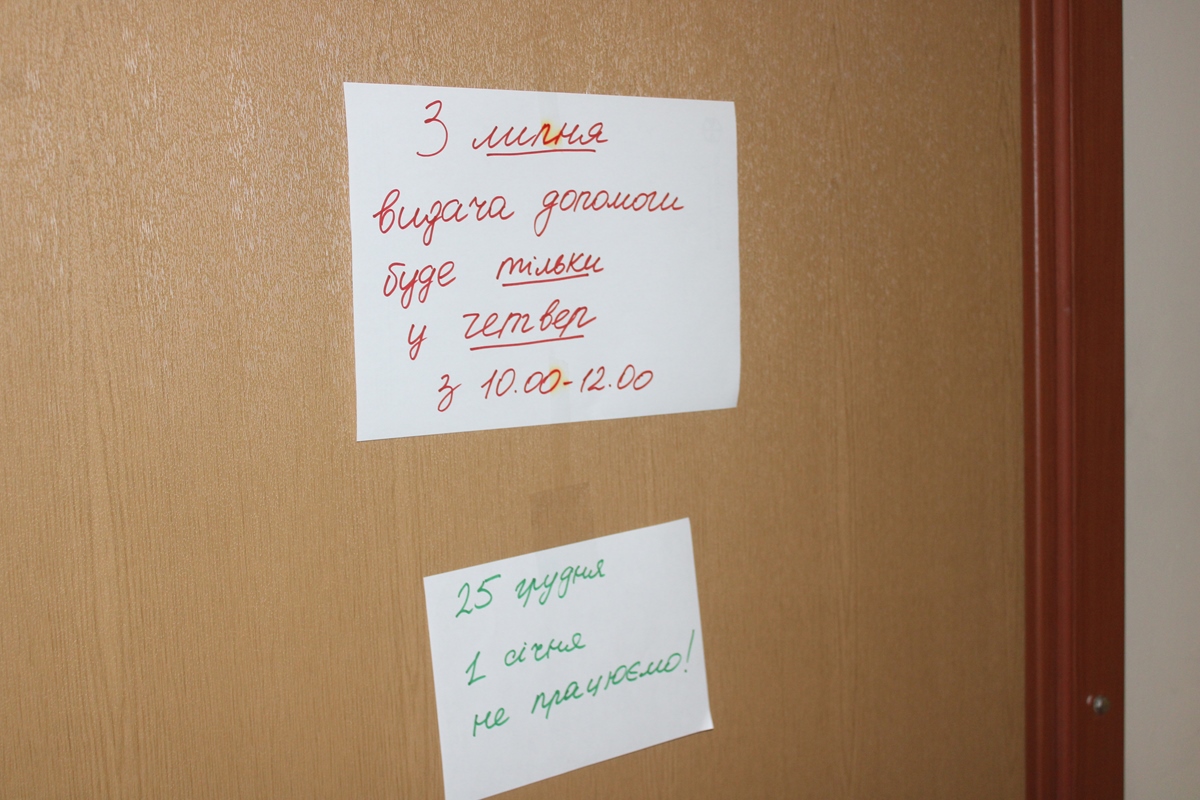 З липня
видача допомоги
буде тільки
у четвер
з 10.00-12.00
25 грудня
1 січня
не працюємо!